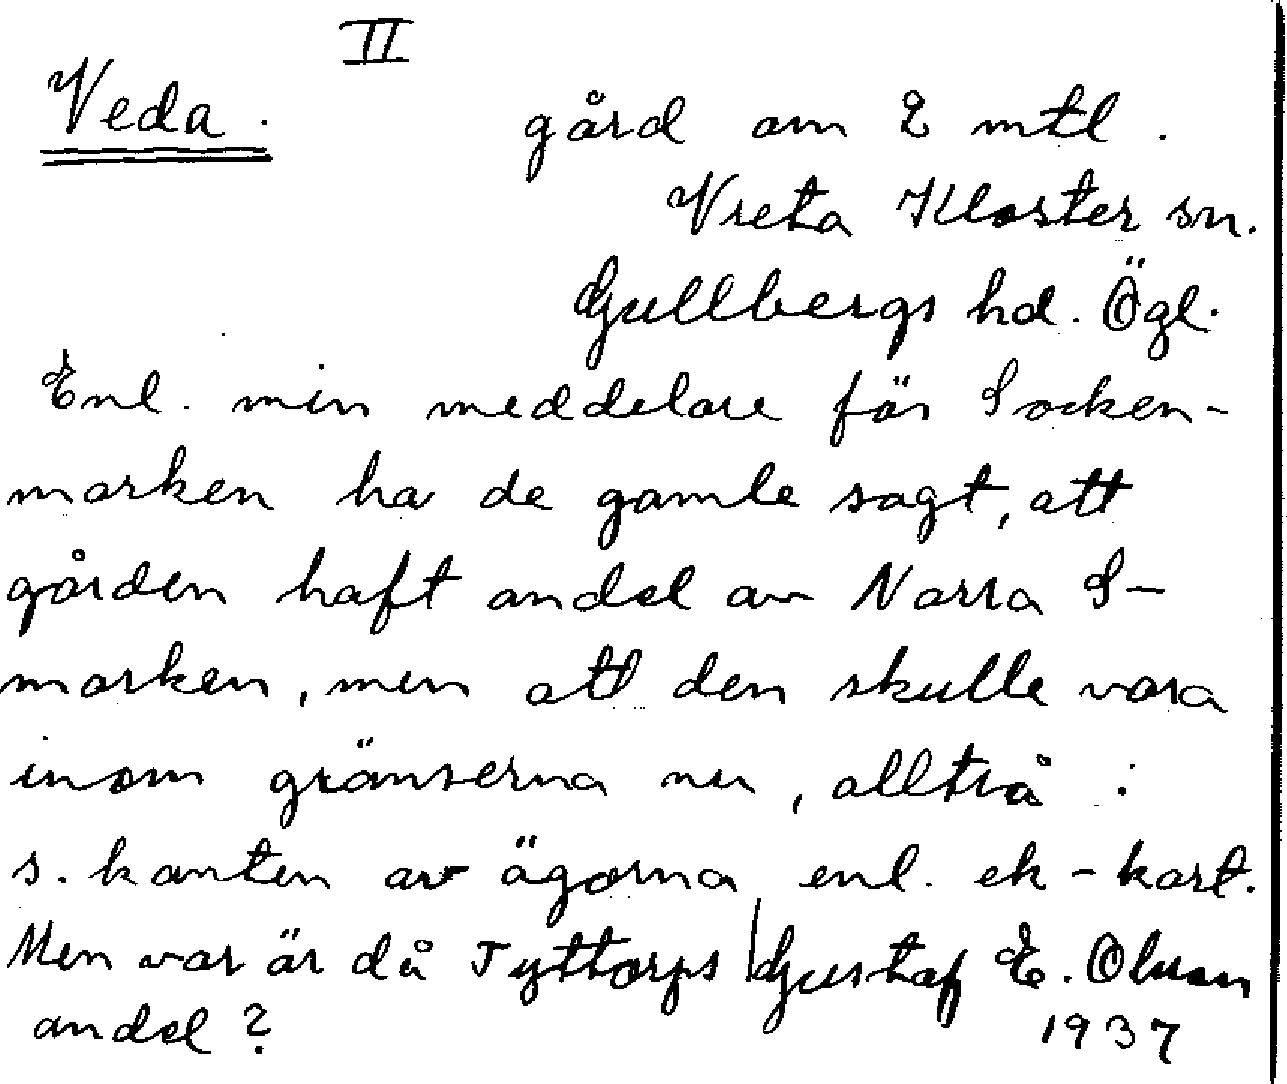 II
Veda.
gård om 2 mtl.
Vreta Kloster sn.
Gullbergs hd. Ögl.
Enl. min meddelare för Socken-
marken ha de gamle sagt, att
gården haft andel av Norra S-
marken, men att den skulle vara
inom gränserna nu, alltså i
s. kanten av ägorna enl. ek-kart.
Men var är då Tyttorps
andel?
Gustaf E. Olsson
1937